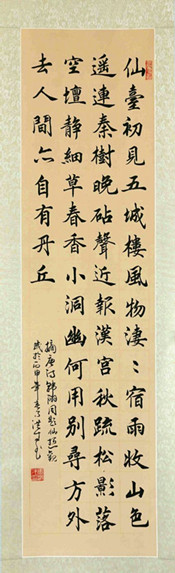 仙臺初見五城樓風物淒〻宿雨收山色
遥連秦樹晚砧聲近報漢宮秋疏松影落
空壇靜細草春香小洞幽何用別尋方外
去人間亦自有丹丘
摘唐詩韓翃同題仙遊觀
丙申年